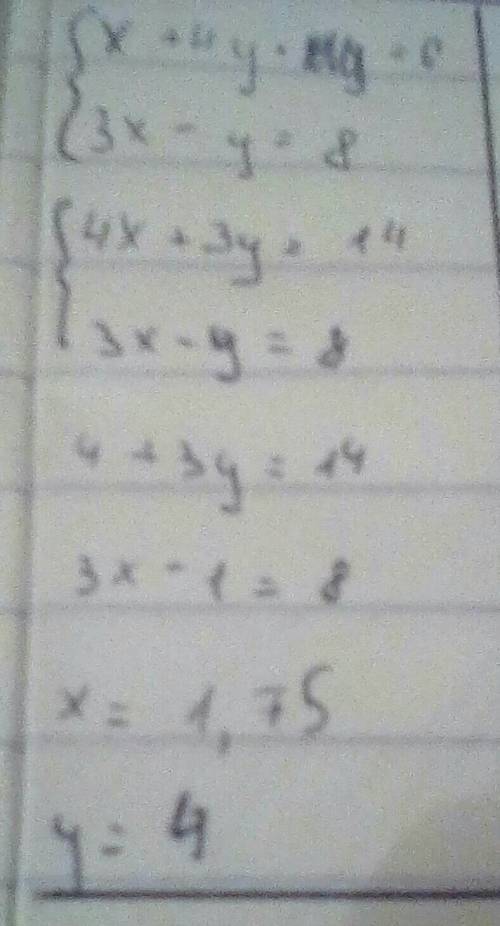 x + 4y = 6
3x - y = 8
4x + 3y = 14
3x - y = 8
4 + 3y = 14
3x - 1 = 8
x = 1,75
y = 4